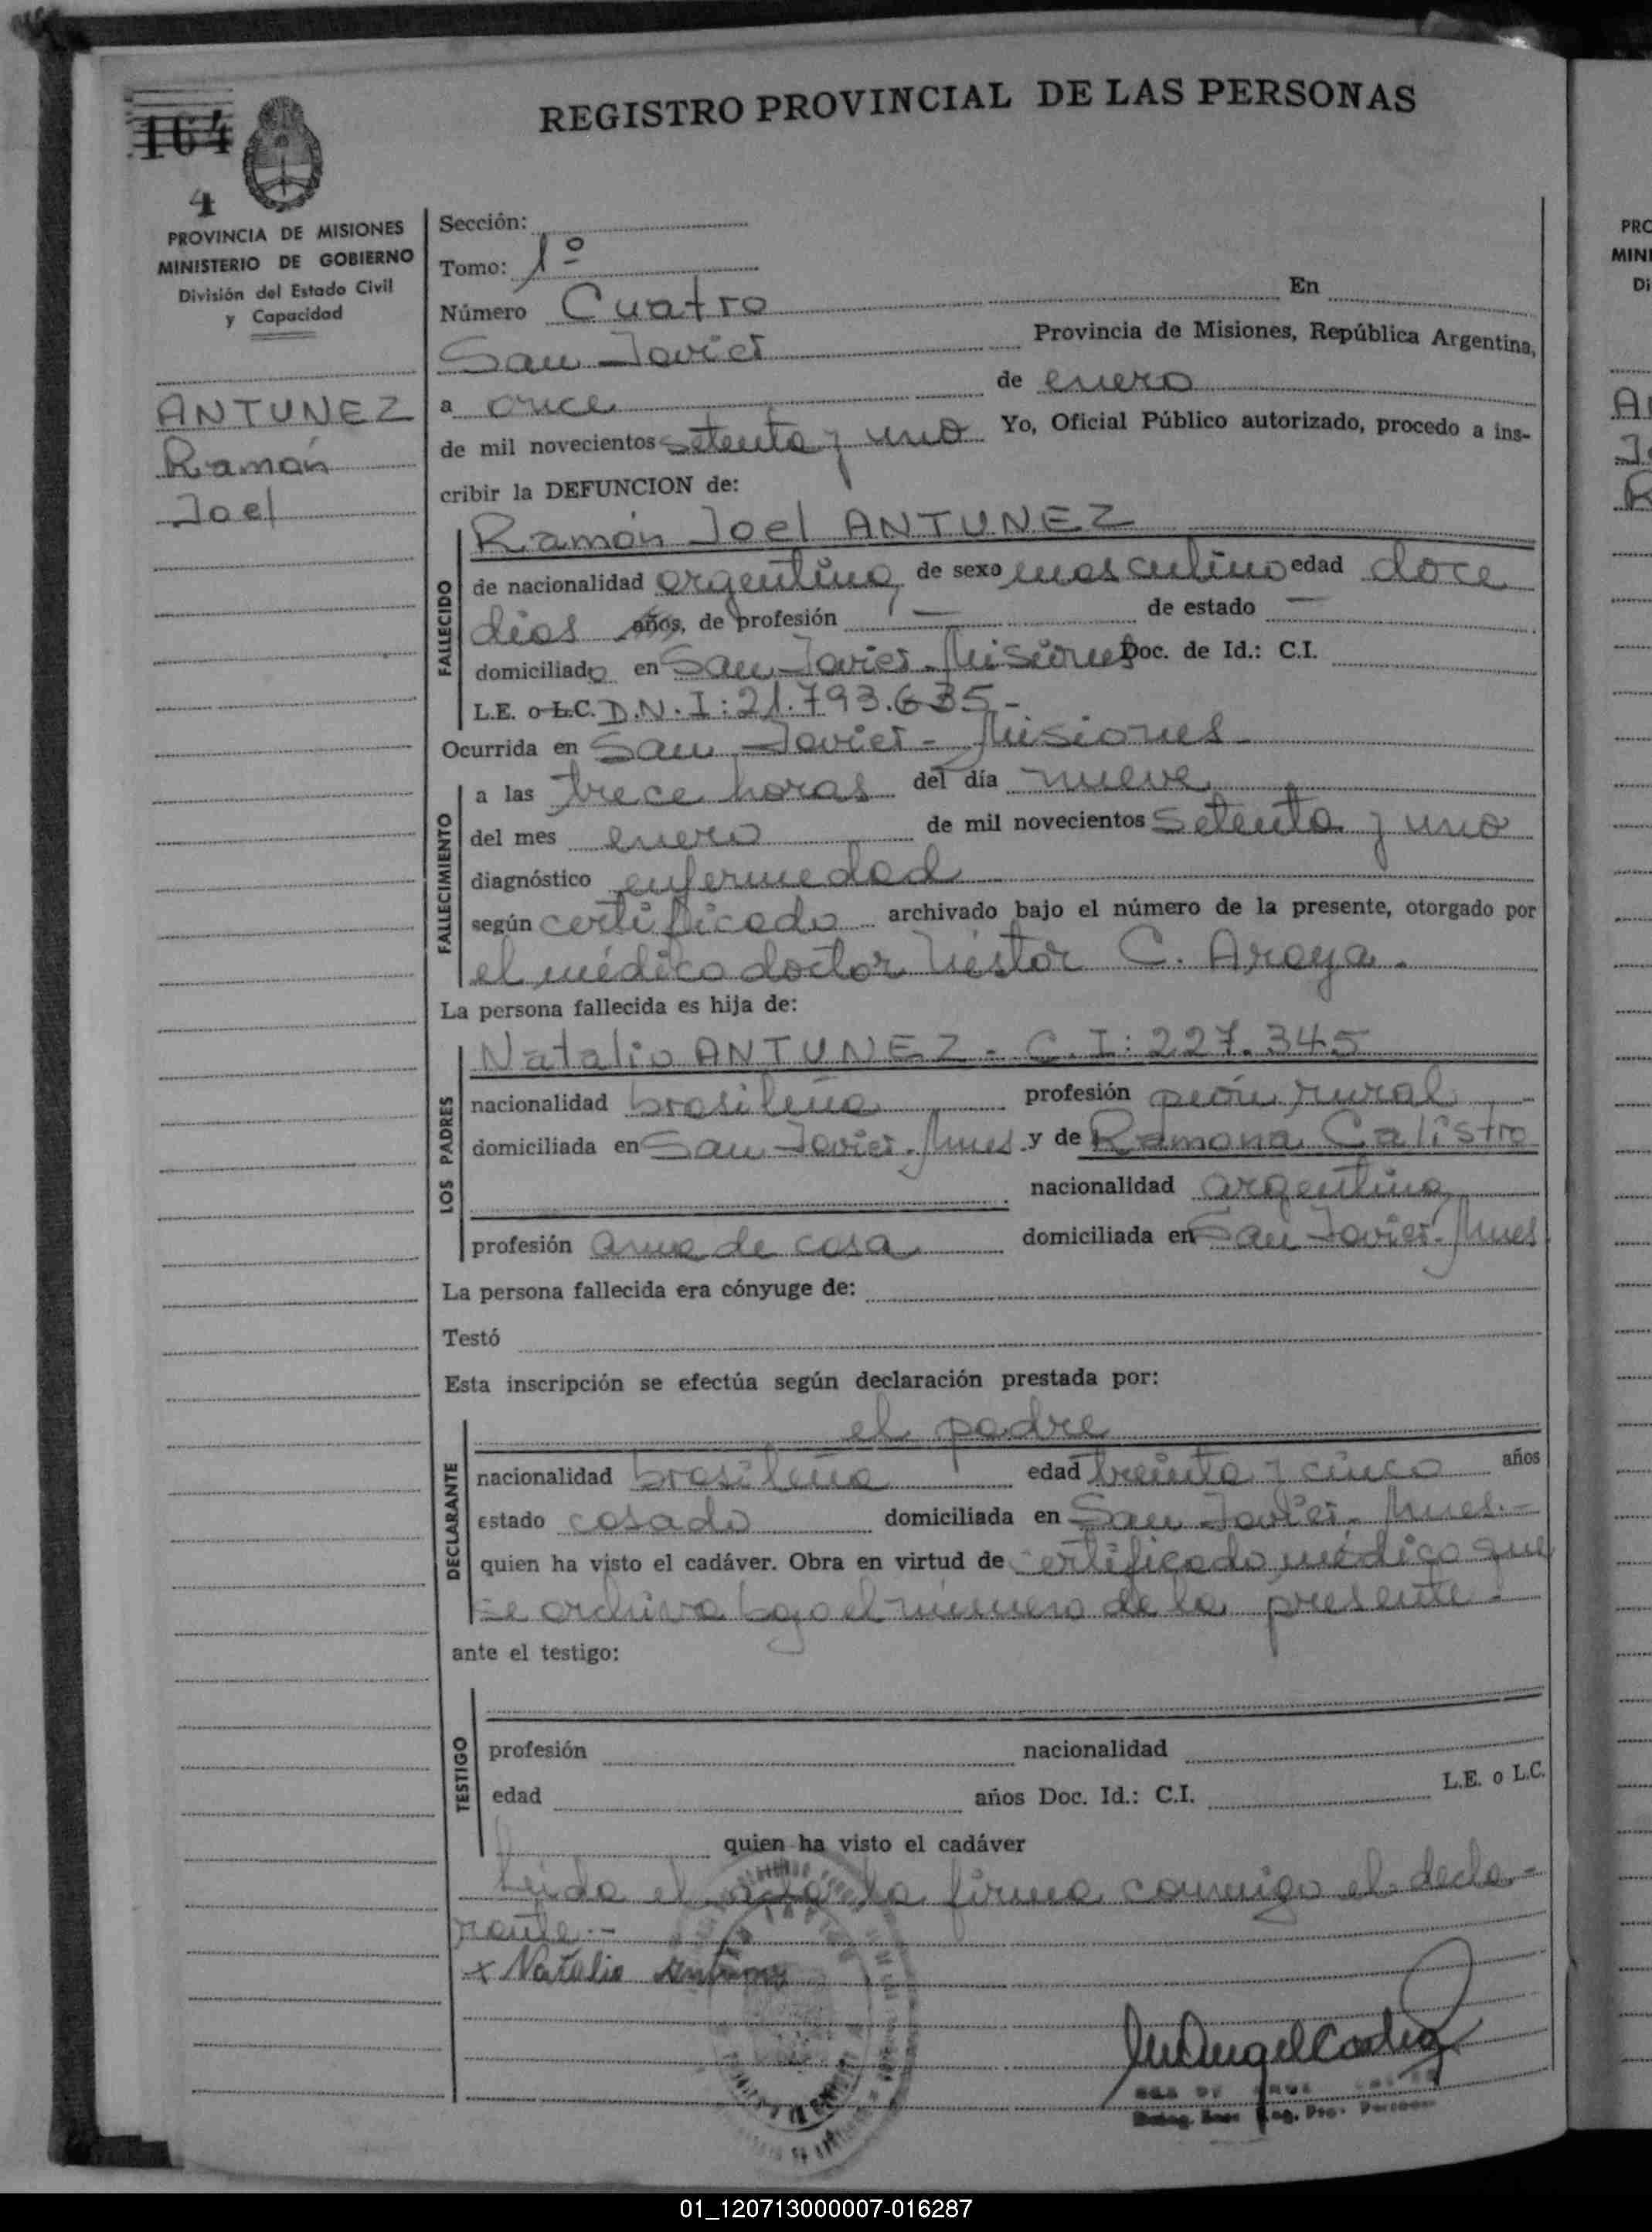 REGISTRO PROVINCIAL DE LAS PERSONAS
164
4
PROVINCIA DE MISIONES
MINISTERIO DE GOBIERNO
División del Estado Civil
y Capacidad
ANTUNEZ
Ramón
Joel
Sección:
Tomo: 1º
Número Cuatro En
San Javier Provincia de Misiones, República Argentina,
a once de enero
de mil novecientos setenta y uno Yo, Oficial Público autorizado, procedo a ins-
cribir la DEFUNCION de:
FALLECIDO
Ramón Joel ANTUNEZ
de nacionalidad argentina de sexo masculino edad doce
días años, de profesión — de estado —
domiciliado en San Javier - Misiones Doc. de Id.: C.I.
L.E. o L.C. D.N.I: 21.793.635-
Ocurrida en San Javier - Misiones-
FALLECIMIENTO
a las trece horas del día nueve
del mes enero de mil novecientos setenta y uno
diagnóstico enfermedad
según certificado archivado bajo el número de la presente, otorgado por
el médico doctor Néstor C. Aroya.
La persona fallecida es hija de:
LOS PADRES
Natalio ANTUNEZ - C.I: 227.345
nacionalidad brasileña profesión peón rural
domiciliada en San Javier-Mnes. y de Ramona Calistro
nacionalidad argentina
profesión ama de casa domiciliada en San Javier-Mnes
La persona fallecida era cónyuge de:
Testó
Esta inscripción se efectúa según declaración prestada por:
DECLARANTE
el padre
nacionalidad brasileña edad treinta y cinco años
estado casado domiciliada en San Javier-Mnes.-
quien ha visto el cadáver. Obra en virtud de certificado médico que
se archiva bajo el número de la presente.-
ante el testigo:
TESTIGO
profesión nacionalidad
edad años Doc. Id.: C.I. L.E. o L.C.
quien ha visto el cadáver
Leída el acta la firma conmigo el decla-
rante.-
x Natalio Antunez
PRO
MINI
Di
01_120713000007-016287